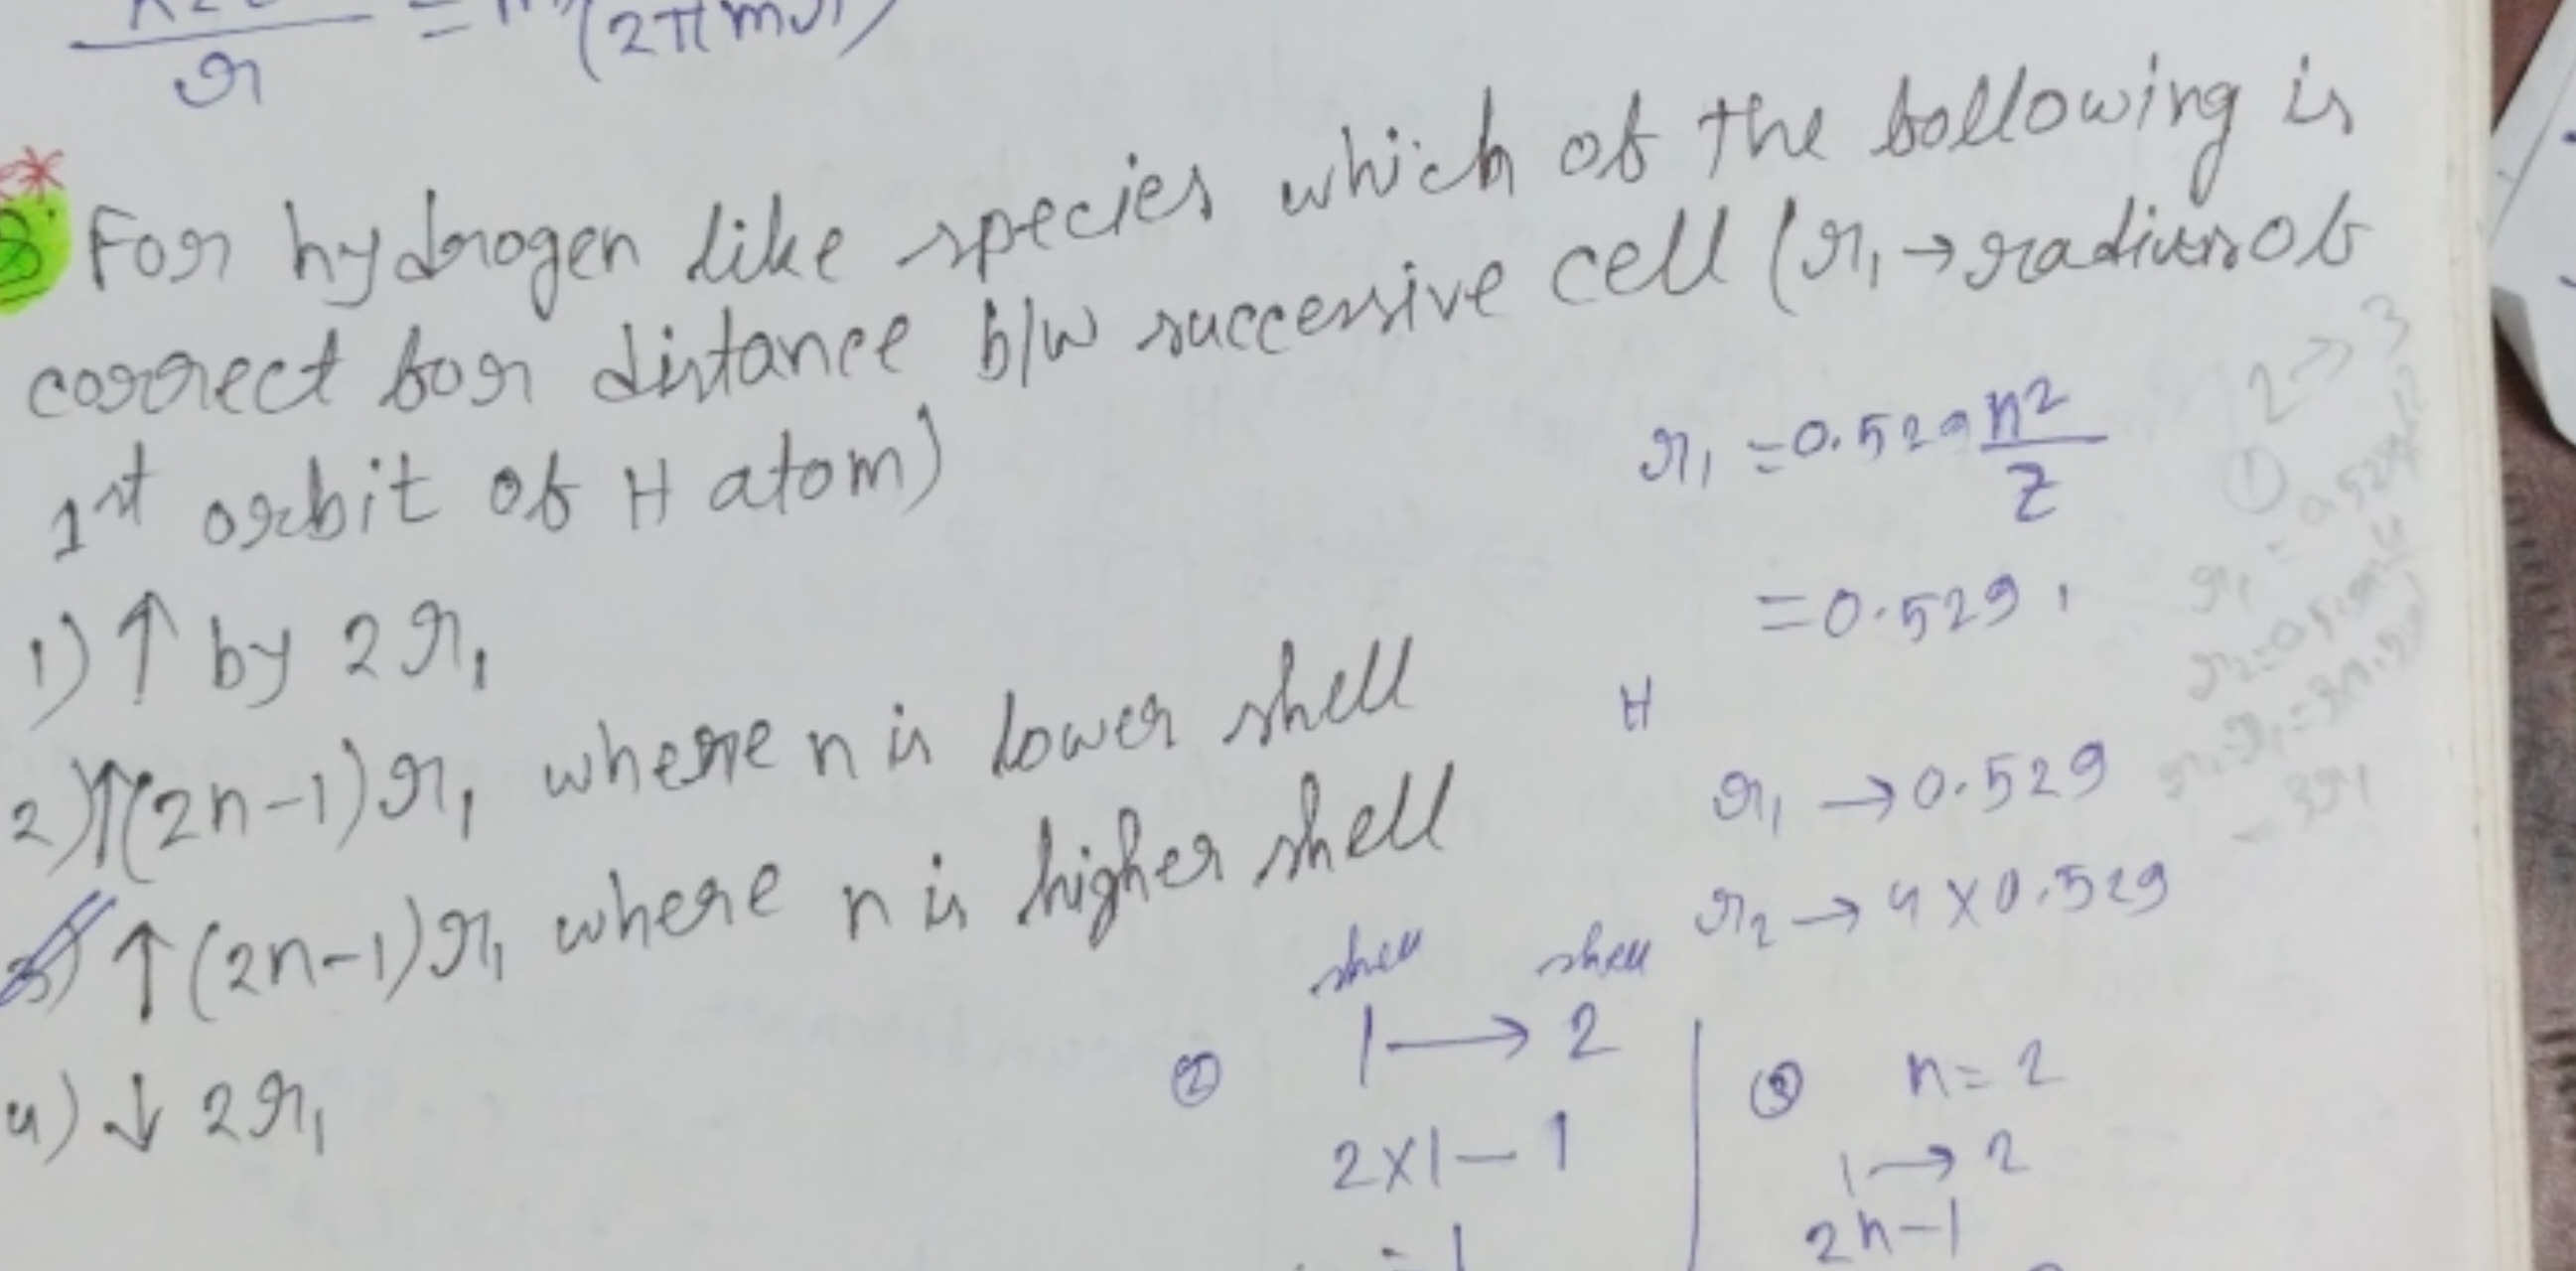 r
(2π
For hydrogen like species which of the following is
correct for distance b/w successive cell (r₁ → radius of
1st orbit of H atom)
r₁ = 0.529 n²/Z
= 0.529
1) ↑ by 2r₁
2) ↑(2n-1)r₁ where n is lower shell
3) ↑(2n-1)r₁ where n is higher shell
4) ↓ 2r₁
H
r₁ → 0.529
r₂ → 4 × 0.529
2 → 3
①
3r₁
shell shell
② 1 → 2
2×1-1
③ n = 2
1 → 2
2n-1